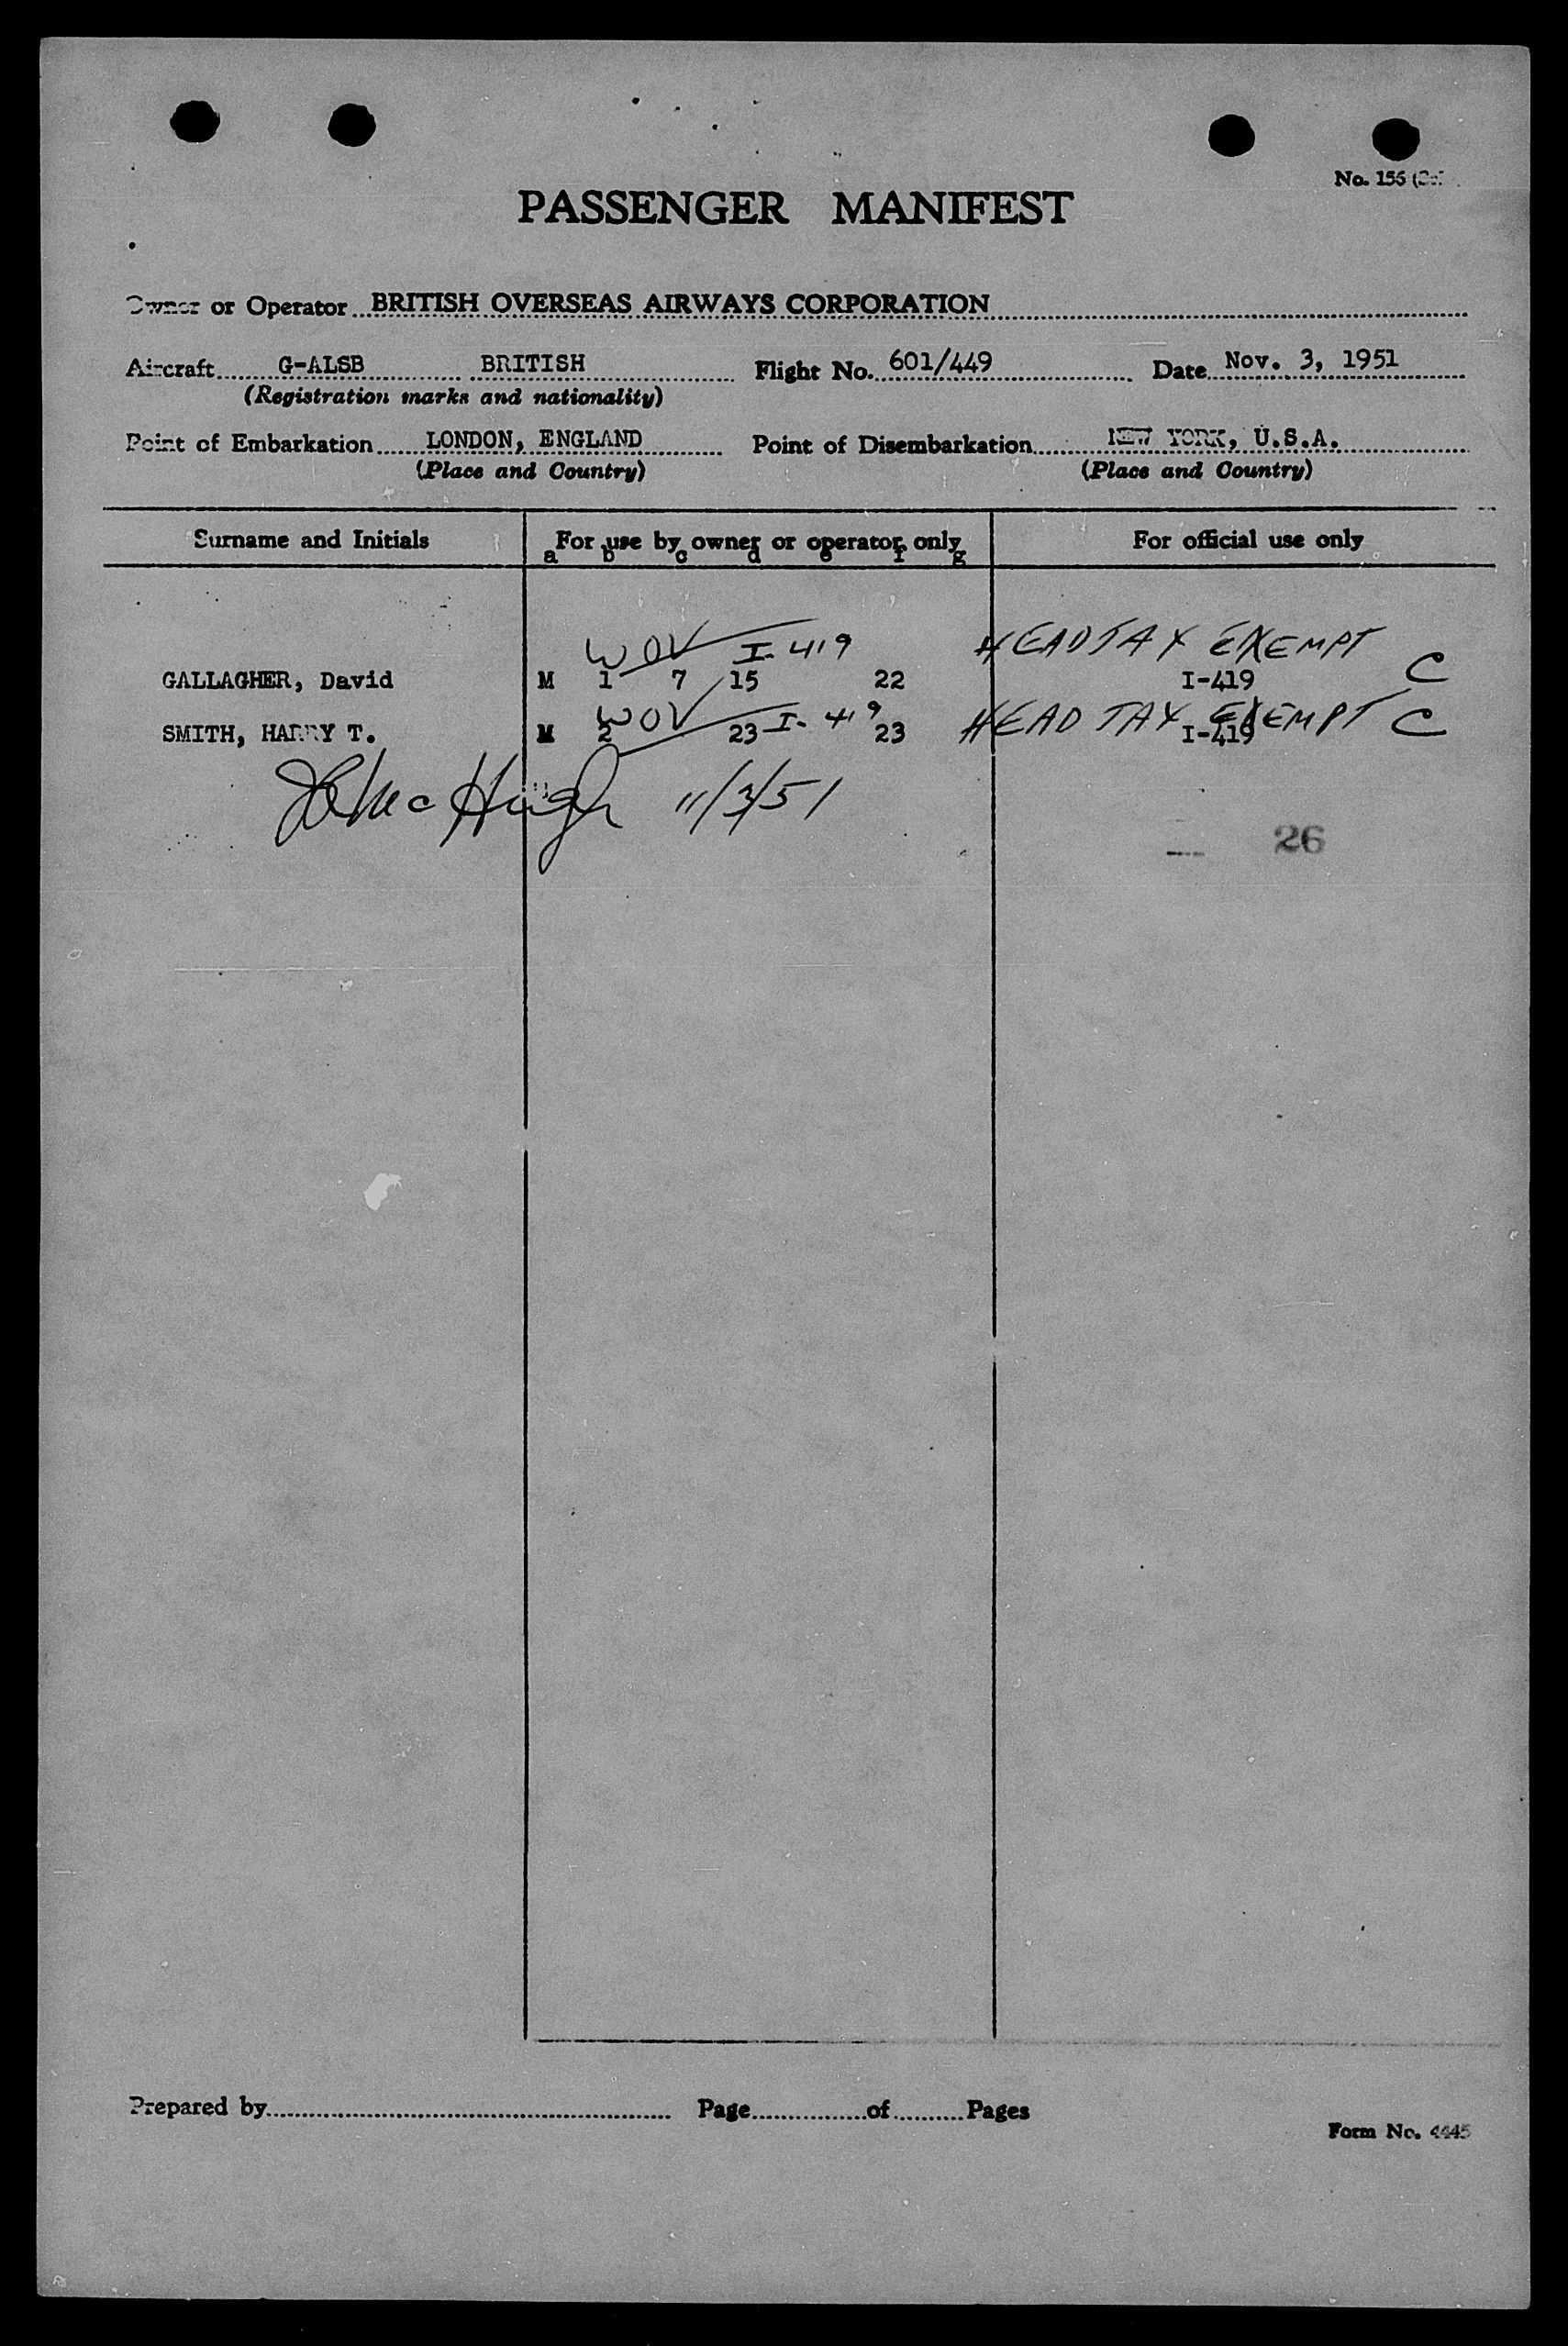 No. 156
PASSENGER MANIFEST
Owner or Operator BRITISH OVERSEAS AIRWAYS CORPORATION
Aircraft G-ALSB BRITISH Flight No. 601/449 Date Nov. 3, 1951
(Registration marks and nationality)
Point of Embarkation LONDON, ENGLAND Point of Disembarkation NEW YORK, U.S.A.
(Place and Country) (Place and Country)
Surname and Initials For use by owner or operator only For official use only
a b c d e f g
WOV I-419 HEAD TAX EXEMPT C
GALLAGHER, David M 1 7 15 22 I-419
WOV I-419 HEAD TAX EXEMPT C
SMITH, HARRY T. M 2 23 23 I-419
McHugh 11/3/51
26
Prepared by Page of Pages
Form No. 4445